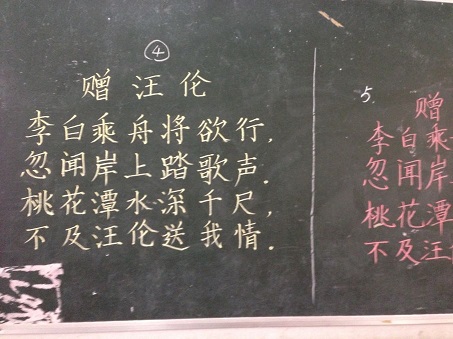 ④
赠汪伦
李白乘舟将欲行，
忽闻岸上踏歌声．
桃花潭水深千尺，
不及汪伦送我情．
5.
赠
李白乘
忽闻岸
桃花潭
不及汪